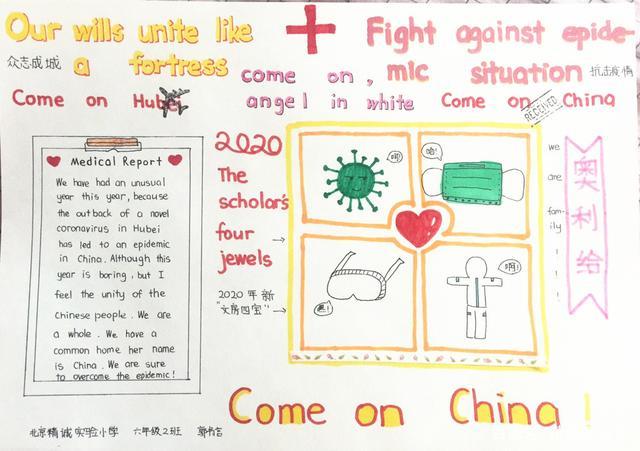 Our wills unite like
众志成城 a fortress
Fight against epide-
mic situation 抗击疫情
come on,
angel in white
Come on Hubei
Come on China
RECEIVED
Medical Report
We have had an unusual
year this year, because
the outback of a novel
coronavirus in Hubei
has led to an epidemic
in China. Although this
year is boring, but I
feel the unity of the
Chinese people. We are
a whole. We have a
common home her name
is China. We are sure
to overcome the epidemic!
2020
The
scholar's
four
jewels
2020年新
"文房四宝"
哈!
啊!
we
are
fam-
ily
!
!
!
奥利给
Come on China!
北京精诚实验小学 六年级2班